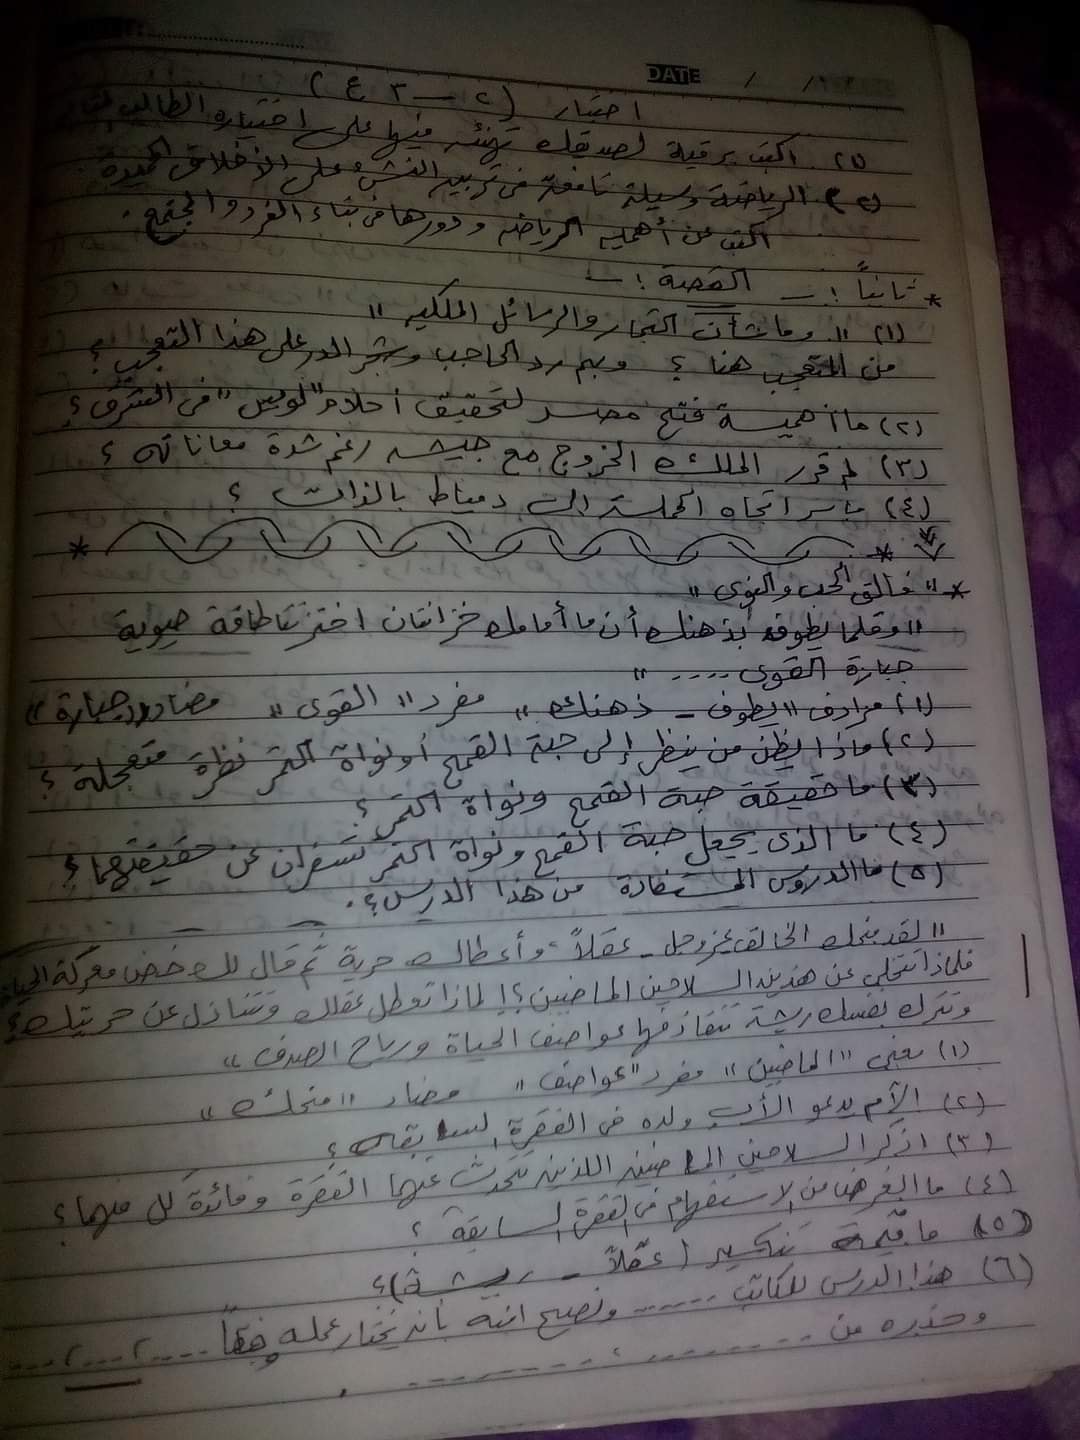 DATE / /
اختبار (٢ - ٣ ع)
(١) اكتب برقية لصديقك تهنئه فيها على اختياره الطالب
(٢) الرياضة وسيلة نافعة فى تربية النشئ على الأخلاق الحميدة
اكتب عن أهمية الرياضة ودورها فى بناء الفرد والمجتمع.
* ثانياً : - القصة : -
(١) " وما شأن التجار والرسائل الملكية "
من المتعجب هنا ؟ وبم رد الحاجب وشجر الدر على هذا التعجب ؟
(٢) ما أهمية فتح مصر لتحقيق أحلام "لويس" فى الشرق ؟
(٣) لم قرر الملك الخروج مع جيشه رغم شدة معاناته ؟
(٤) ما سر اتجاه الحملة إلى دمياط بالذات ؟
* " فالق الحب والنوى "
" وقلما يطوف بذهنك أن ما أمامك خزانتان اختزنتا طاقة حيوية
جبارة القوى .... "
(١) مرادف " يطوف - ذهنك " مفرد " القوى " مضاد " جبارة "
(٢) ماذا يظن من ينظر إلى حبة القمح أو نواة التمر نظرة متعجلة ؟
(٣) ما حقيقة حبة القمح ونواة التمر ؟
(٤) ما الذى يجعل حبة القمح ونواة التمر تسفران عن حقيقتهما ؟
(٥) ما الدروس المستفادة من هذا الدرس ؟.
" لقد منحك الخالق عز وجل - عقلاً وأعطاك حرية ثم قال لك خض معركة الحياة
فلماذا تتخلى عن هذين السلاحين الماضيين ؟! لماذا تعطل عقلك وتتنازل عن حريتك ؟
وتترك نفسك ريشة تتقاذفها عواصف الحياة ورياح الصدف "
(١) معنى " الماضيين " مفرد " عواصف " مضاد " منحك "
(٢) إلام يدعو الأب ولده فى الفقرة السابقة ؟
(٣) اذكر السلاحين الماضيين اللذين تتحدث عنهما الفقرة وفائدة كل منهما ؟
(٤) ما الغرض من الاستفهام فى الفقرة السابقة ؟
(٥) ما قيمة تنكير (عقلاً - ريشة) ؟
(٦) هذا الدرس للكاتب ...... ونصح ابنه بأن يختار عمله وفقاً .... ، .... ، ....
وحذره من ........ ، ........ .